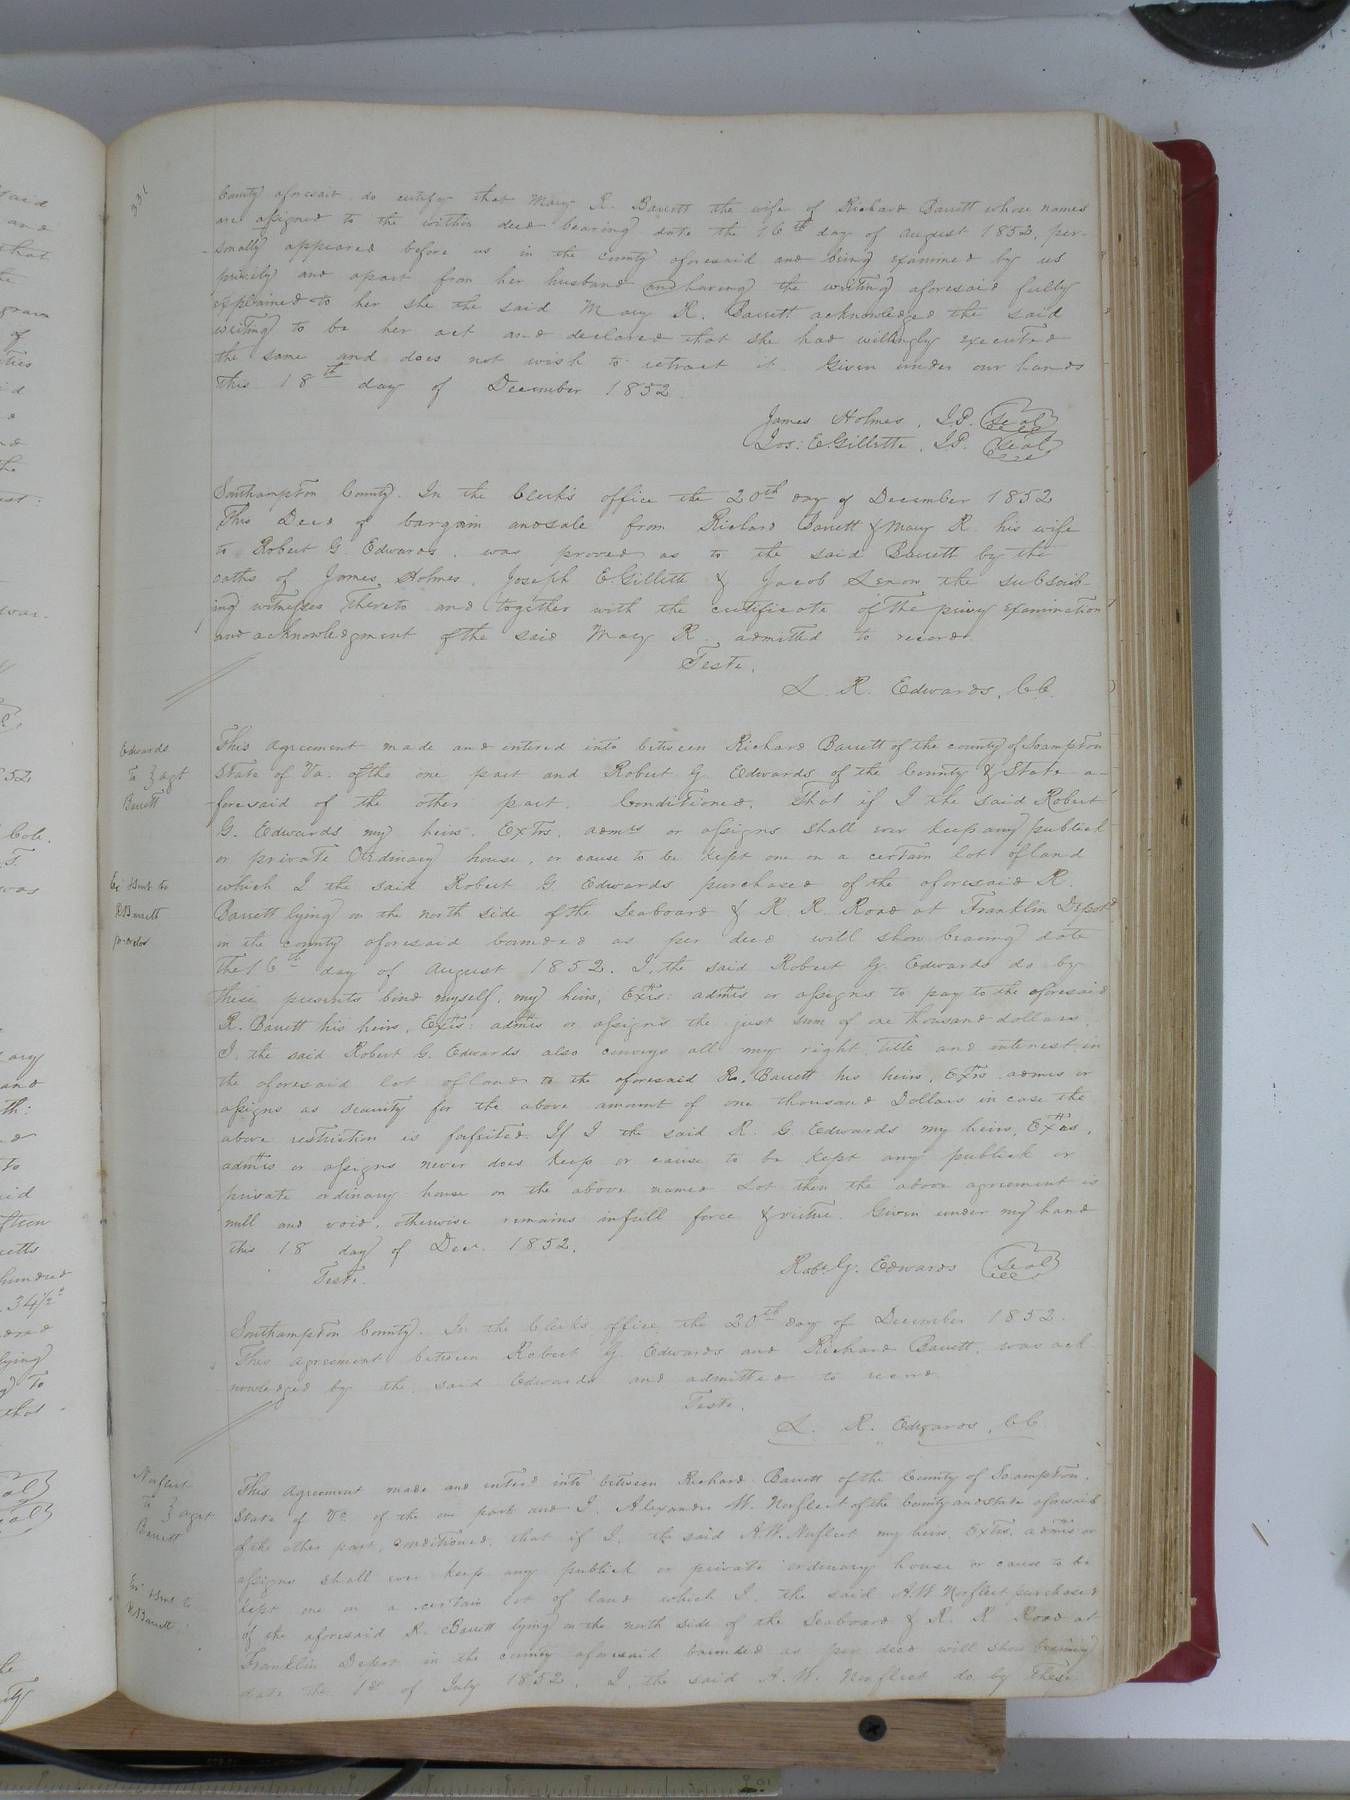 331
County aforesaid do certify that Mary R. Barrett the wife of Richard Barrett whose names
are assigned to the within deed bearing date the 16th day of August 1852, per-
-sonally appeared before us in the county aforesaid and being examined by us
privily and apart from her husband and having the writing aforesaid fully
explained to her she the said Mary R. Barrett acknowledged the said
writing to be her act and declared that she had willingly executed
the same and does not wish to retract it. Given under our hands
this 18th day of December 1852.
James Holmes, J.P. Seal
Jos: E Gillette, J.P. Seal
Southampton County. In the Clerk's office the 20th day of December 1852
This Deed of bargain and sale from Richard Barrett & Mary R. his wife
to Robert G. Edwards, was proved as to the said Barrett by the
oaths of James Holmes, Joseph E Gillette & Jacob Lenow the subscrib-
ing witnesses thereto and together with the certificate of the privy examination
and acknowledgment of the said Mary R. admitted to record
Teste.
L. R. Edwards, C.C.
Edwards
To } agt
Barrett
This agreement made and entered into between Richard Barrett of the county of Soampton
State of Va. of the one part and Robert G Edwards of the County & State a-
-foresaid of the other part. Conditioned, That if I the said Robert
G. Edwards my heirs, Extrs, admrs or assigns shall ever keep any publick
or private Ordinary house, or cause to be kept one on a certain lot of land
which I the said Robert G. Edwards purchased of the aforesaid R.
Barrett lying on the north side of the Seaboard & R. R. Road at Franklin Depot
in the county aforesaid bounded as per deed will show bearing date
the 16th day of August 1852. I, the said Robert G. Edwards do by
these presents bind myself, my heirs, Extrs: admrs or assigns to pay to the aforesaid
R. Barrett his heirs, Extrs: admrs or assigns the just sum of one thousand dollars.
I, the said Robert G. Edwards also conveys all my right title and interest in
the aforesaid lot of land to the aforesaid R. Barrett his heirs, Extrs admrs or
assigns as security for the above amount of one thousand Dollars in case the
above restriction is forfeited. If I the said R. G. Edwards my heirs, Extrs,
admrs or assigns never does keep or cause to be kept any publick or
private ordinary house on the above named Lot then the above agreement is
null and void, otherwise remains in full force & virtue. Given under my hand
this 18 day of Decr. 1852.
Ex' & sent to
R Barrett
Teste. Robt. G. Edwards Seal
Southampton County. In the Clerks office the 20th day of December 1852.
This agreement between Robert G. Edwards and Richard Barrett, was ack
nowledged by the said Edwards and admitted to record
Teste.
L. R. Edwards, C.C.
Norfleet
to } agt
Barrett
This Agreement made and entered into between Richard Barrett of the County of Soampton,
State of Va of the one part and I, Alexander W. Norfleet of the County and state aforesaid
of the other part, conditioned, that if I, the said A.W. Norfleet my heirs, Extrs, admrs or
assigns shall ever keep any publick or private ordinary house or cause to be
kept one on a certain lot of land which I, the said A.W. Norfleet purchased
of the aforesaid R. Barrett lying on the north side of the Seaboard & R. R Road at
Franklin Depot in the county aforesaid bounded as per deed will show bearing
date the 1st of July 1852. I, the said A. W. Norfleet do by these
Ex' & sent to
R Barrett